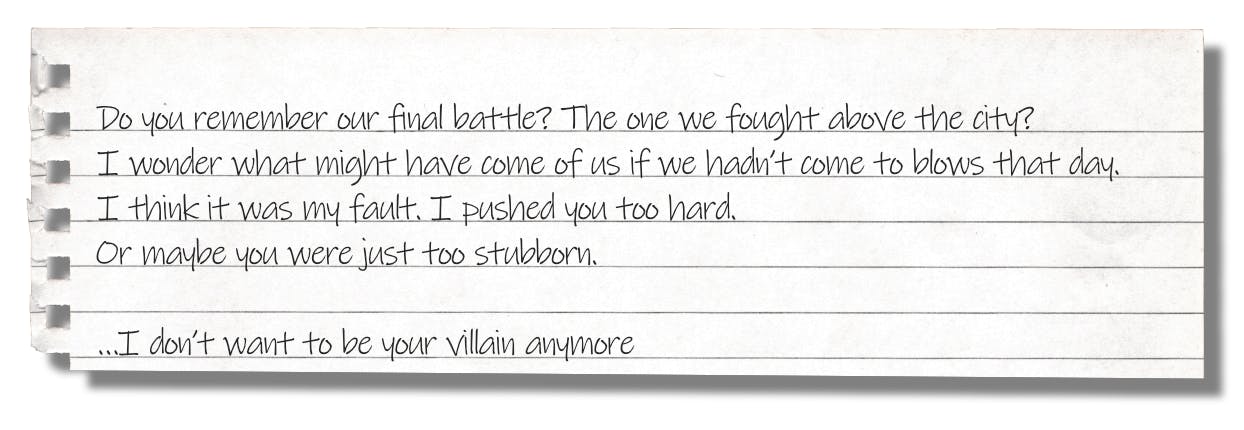 Do you remember our final battle? The one we fought above the city?
I wonder what might have come of us if we hadn't come to blows that day.
I think it was my fault. I pushed you too hard.
Or maybe you were just too stubborn.
...I don't want to be your villain anymore